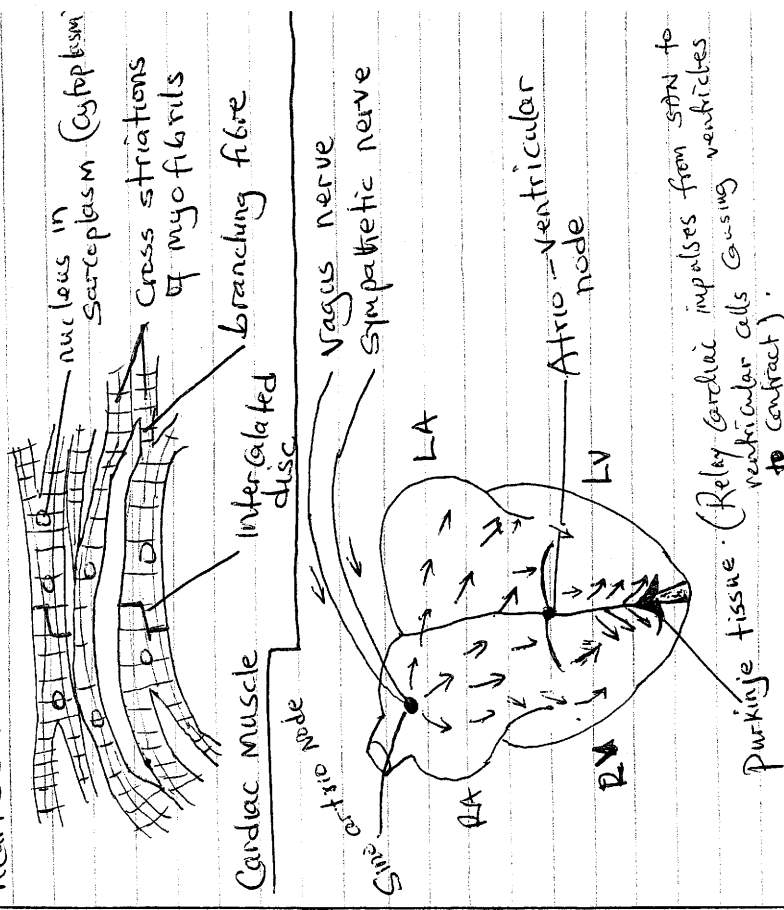 nucleus in
sarcoplasm (cytoplasm
Cross striations
of myofibrils
branching fibre
Intercalated
disc
Cardiac Muscle
Vagus nerve
Sympathetic nerve
Sino artrio Node
LA
RA
Atrio-ventricular
node
LV
RV
Purkinje tissue. (Relay Cardiac impulses from SAN to
ventricular cells Causing ventricles
to contract).